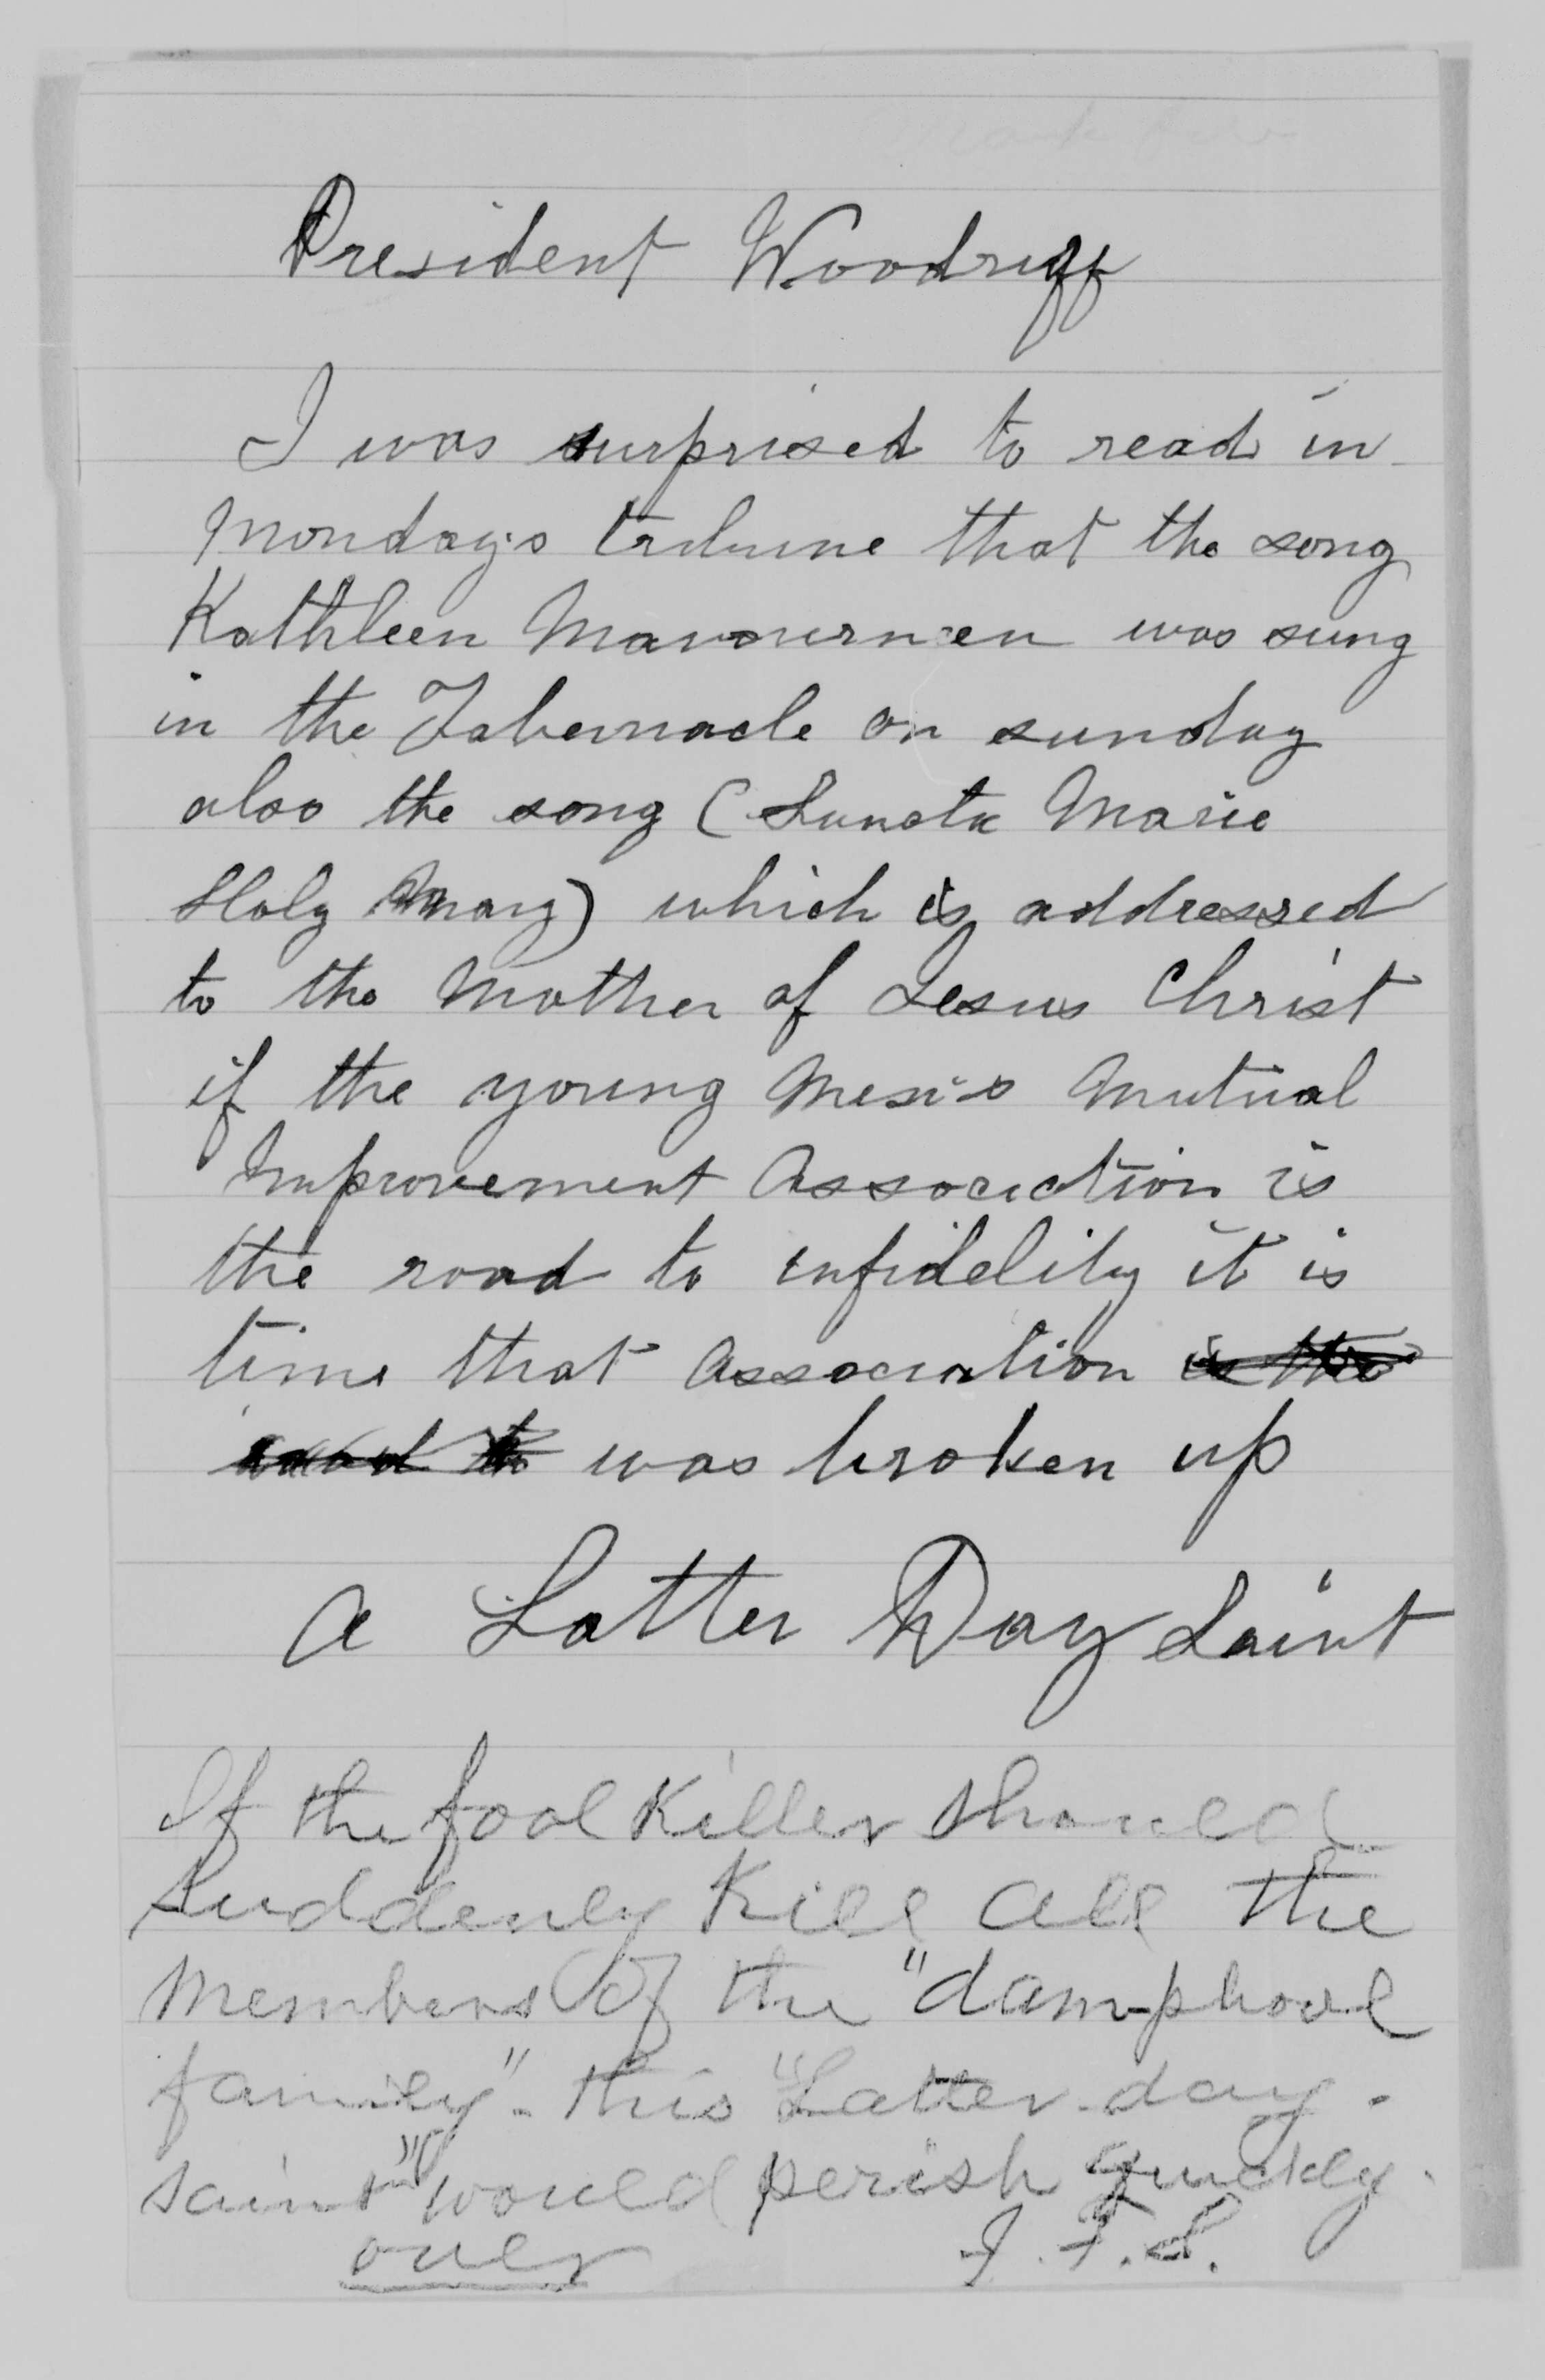 President Woodruff
I was surprised to read in
Monday's tribune that the song
Kathleen Mavourneen was sung
in the Tabernacle on sunday
also the song (Suncta Marie
Holy Mary) which is addressed
to the Mother of Jesus Christ
if the young Men's Mutual
Improvement Association is
the road to infidelity it is
time that Association is the
road to was broken up
A Latter Day Saint
If the fool Killer should
suddenly Kill all the
members of the "damphool
family" - this "Latter-day-
saint" would perish quickly.
over J. F. S.